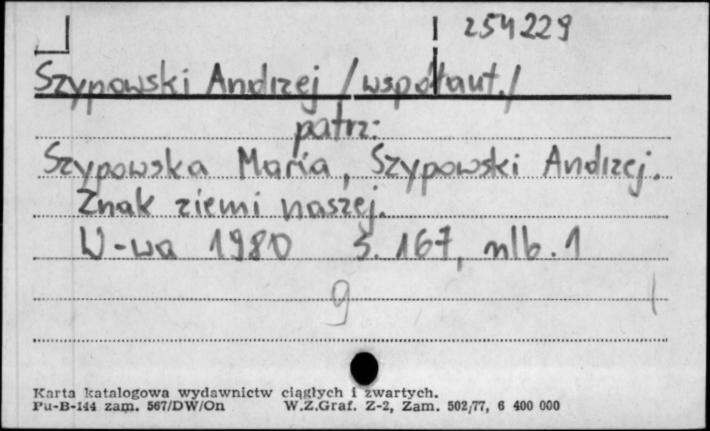 254229
Szypowski Andrzej /współaut./
patrz:
Szypowska Maria, Szypowski Andrzej.
Znak ziemi naszej.
W-wa 1980 s. 167, nlb. 1
g
Karta katalogowa wydawnictw ciągłych i zwartych.
Pu-B-144 zam. 567/DW/On W.Z.Graf. Z-2, Zam. 502/77, 6 400 000